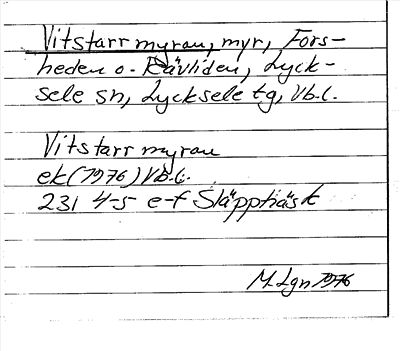 Vitstarrmyran, myr, Fors-
heden o. Rävliden, Lyck-
sele sn, Lycksele tg, Vb.l.
Vitstarrmyran
ek (1976) Vb.l.
231 4-5 e-f Släppträsk
M. Lgn 1976